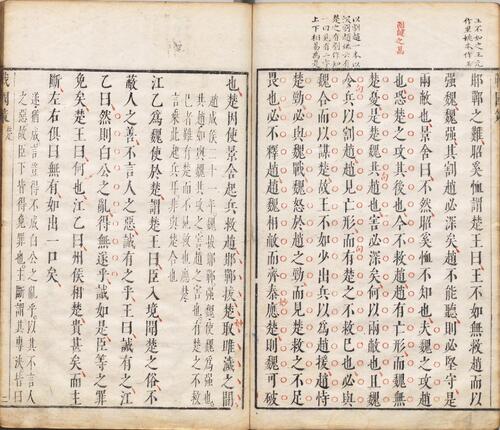 邯鄲之難昭奚恤謂楚王曰王不如無救趙而以
強魏魏強其割趙必深矣趙不能聽則必堅守是
兩敝也景舍曰不然昭奚恤不知也夫魏之攻趙
也恐楚之攻其後也今不救趙趙有亡形而魏無
楚憂是楚魏共趙也害必深矣何以兩敝也且魏
令兵以割趙趙見亡形而有楚之不救已也必與
魏合而以謀楚故王不如少出兵以爲趙援趙恃
楚勁必與魏戰魏怒於趙之勁而見楚救之不足
畏也必不釋趙趙魏相敝而齊秦應楚則魏可破
也楚因使景舍起兵救趙邯鄲拔楚取睢濊之間
趙成侯二十一年魏拔邯鄲強魏使魏爲強也
江乙爲魏使於楚謂楚王曰臣入境聞楚之俗不
蔽人之善不言人之惡誠有之乎王曰誠有之江
乙曰然則白公之亂得無遂乎誠如是臣等之罪
免矣楚王曰何也江乙曰州侯相楚貴甚矣而主
斷左右俱曰無有如出一口矣
遂猶成言豈得不成白公之亂乎以其不言人
之惡故臣下皆得免罪也主斷謂其專決皆曰